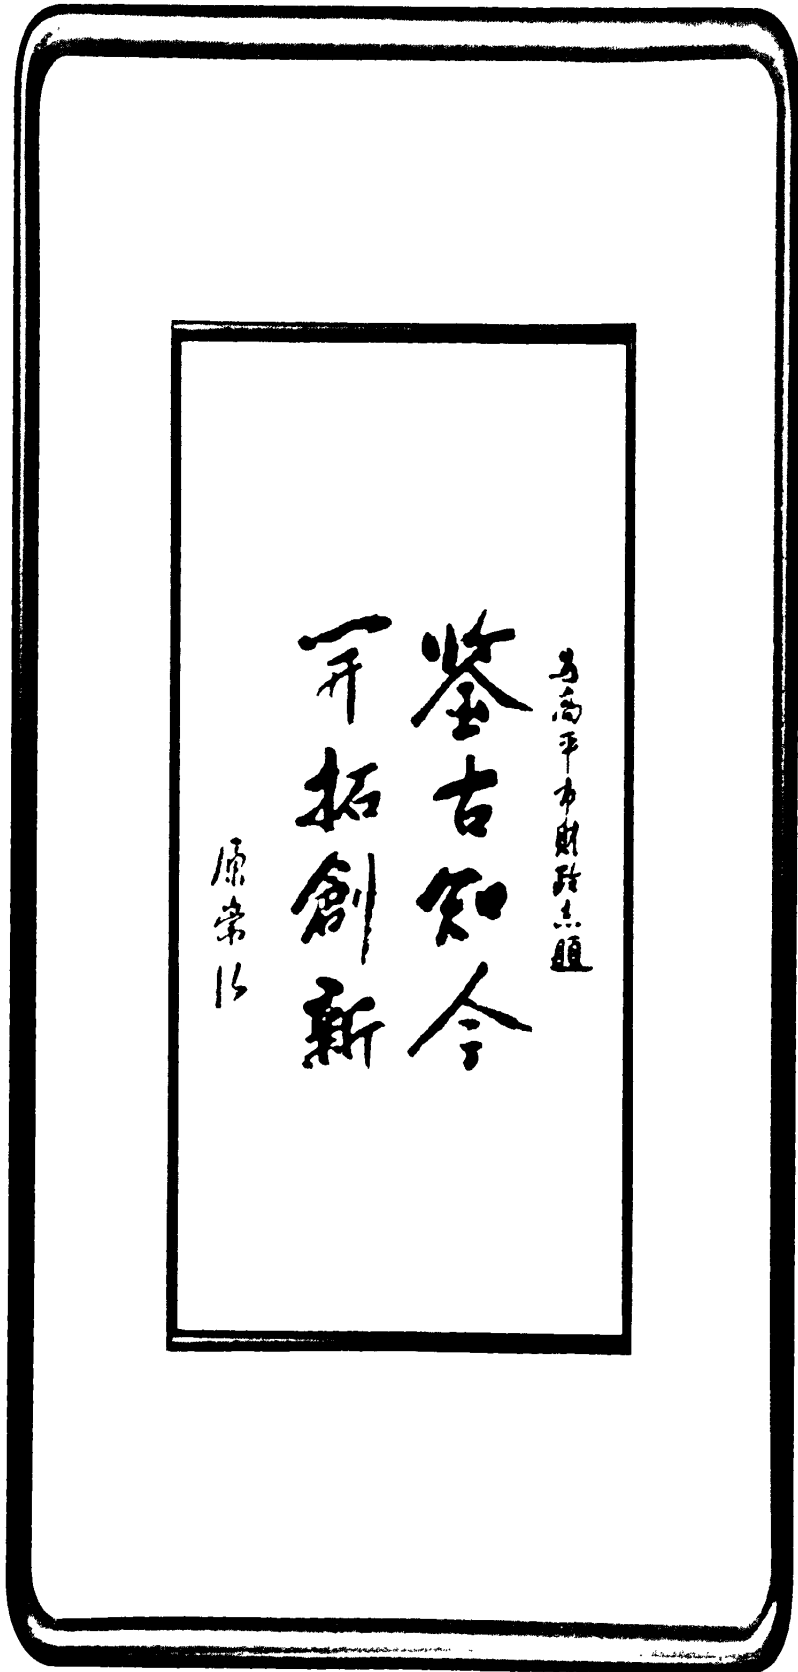 为高平市财政志题
鉴古知今
开拓創新
原崇